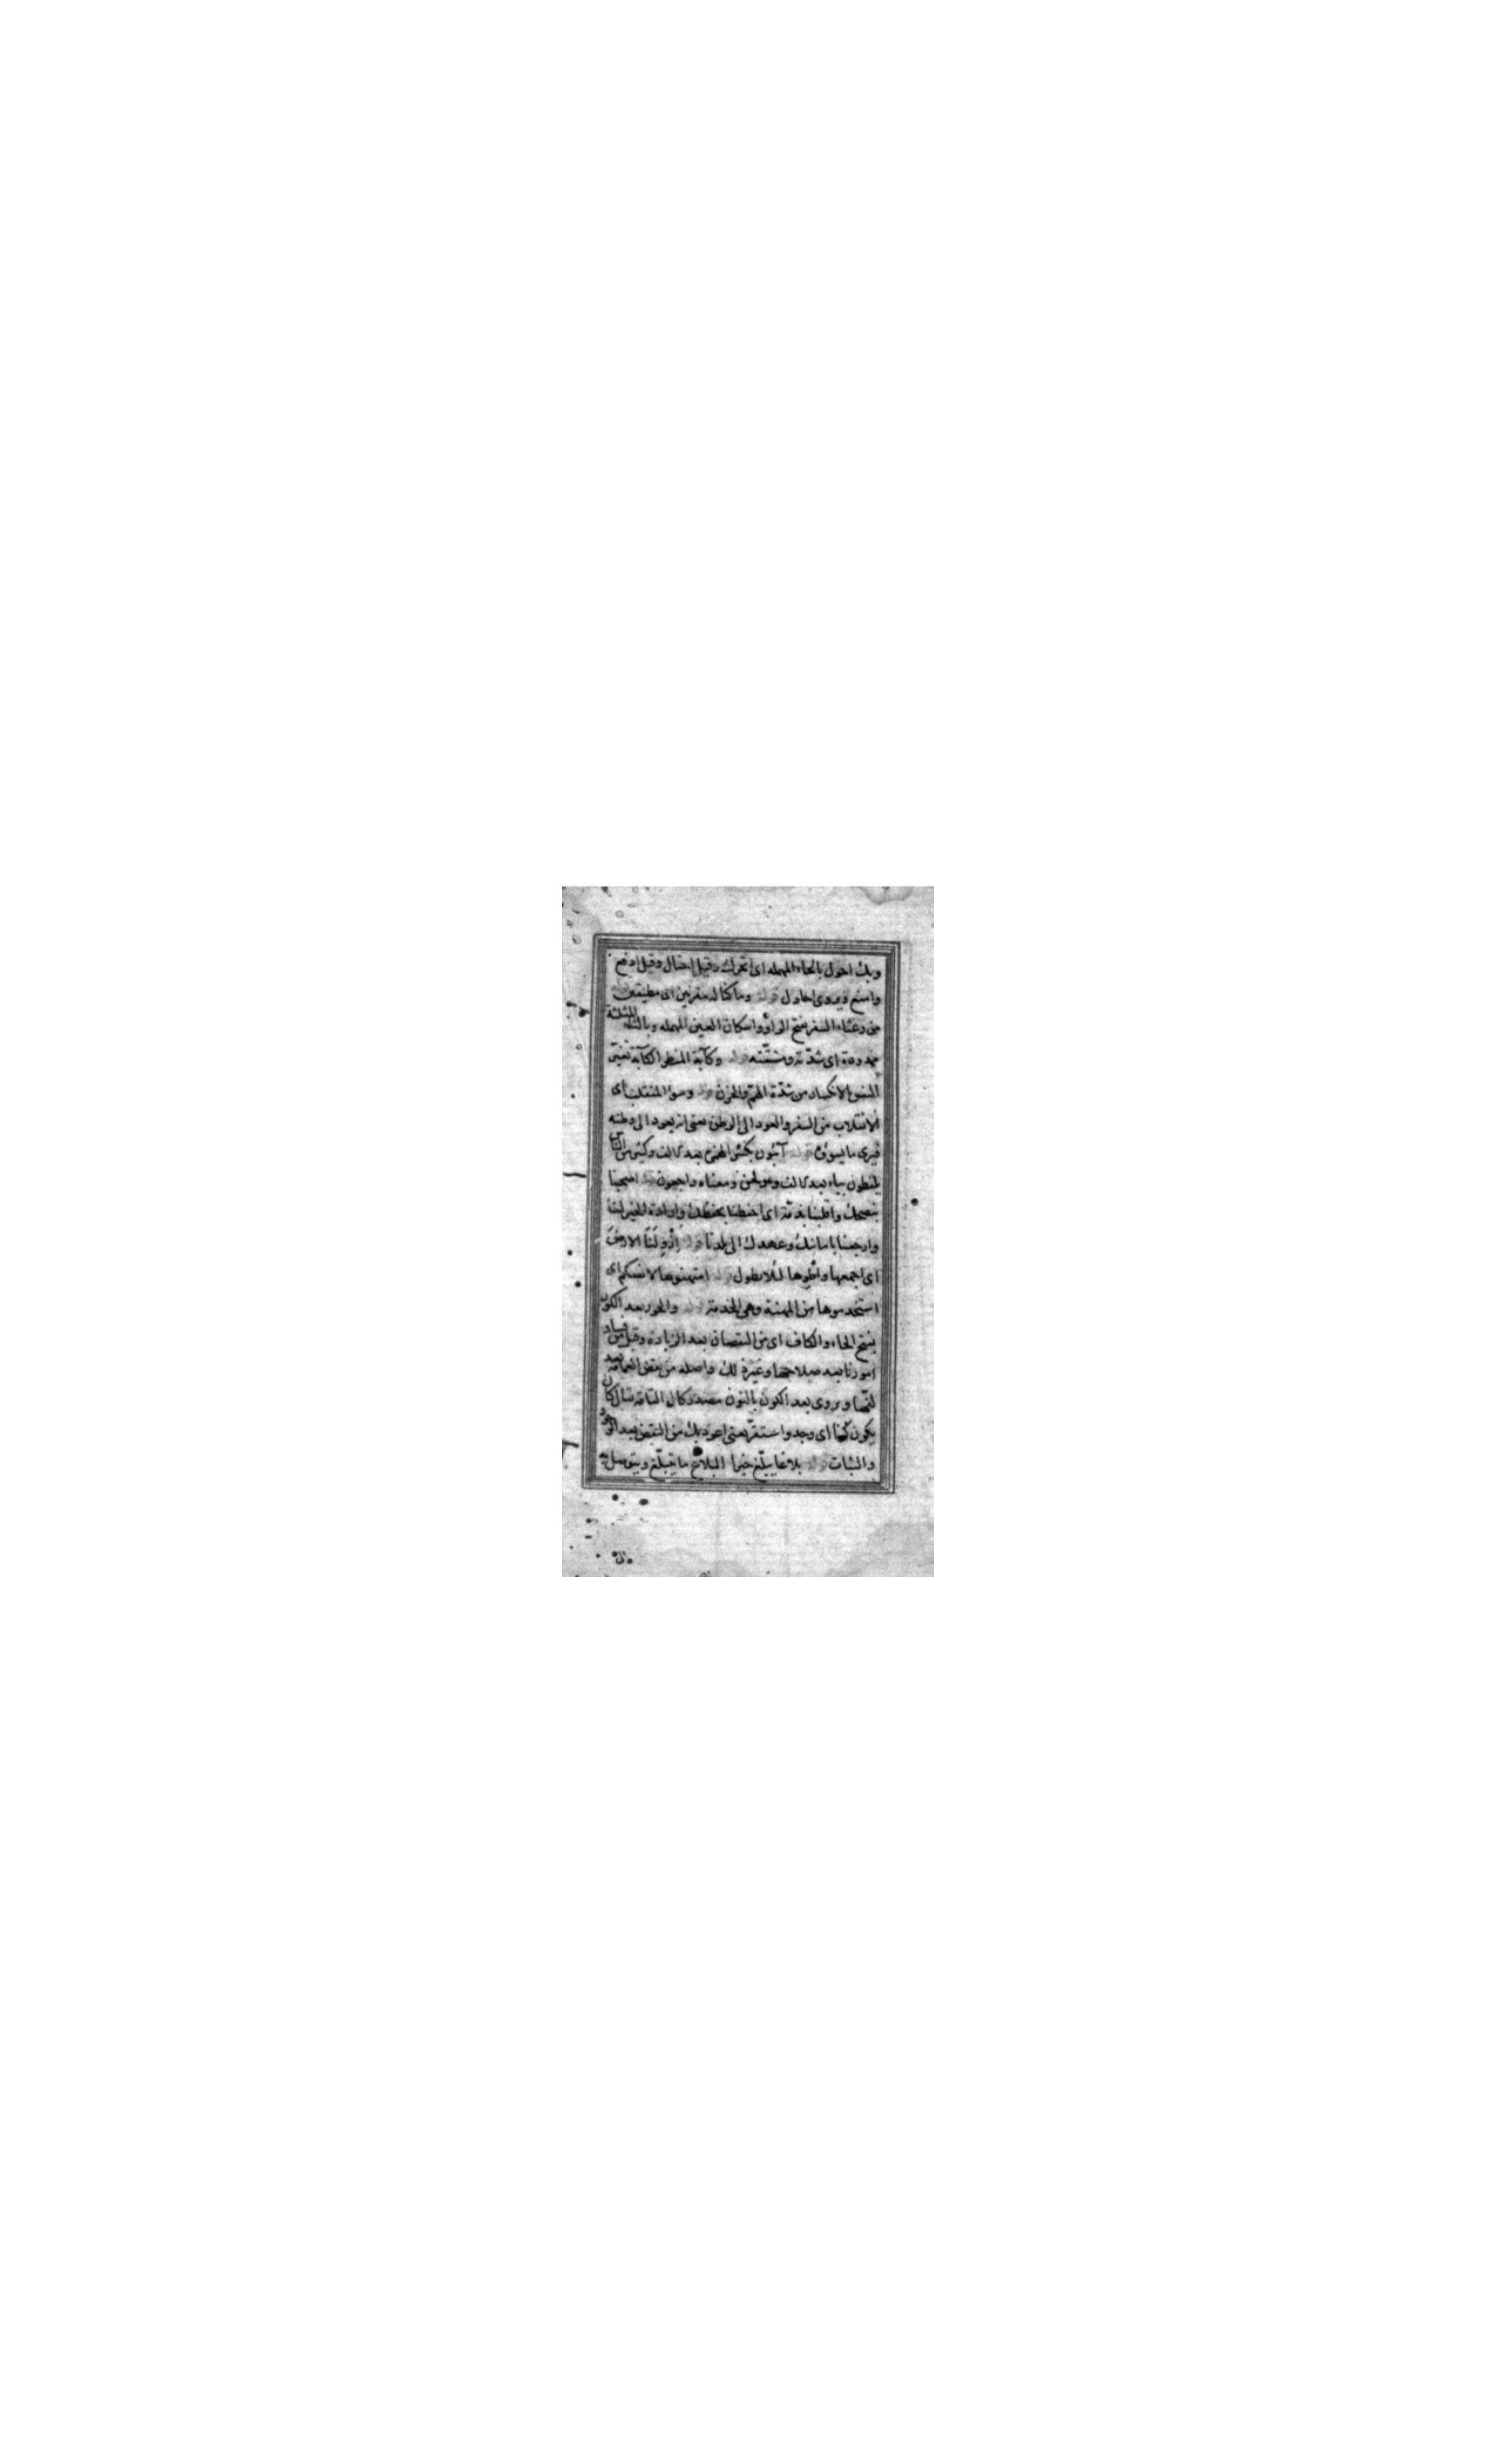 وبك احول بالحاء المهمله اى اتحرك وقيل احتال وقيل ادفع
وامنع ويروى احاول قوله وما كنا له مقرنين اى مطيقين
من وعثاء السفر بفتح الواو واسكان العين المهمله وبالثاء المثلثة
ممدودة اى شدّته ومشقّته قوله وكآبة المنظر الكآبة تغيّر
النفس بالانكسار من شدّة الهمّ والحزن قوله وسوء المنقلب اى
الانقلاب من السفر والعود الى الوطن يعنى انه يعود الى وطنه
فيرى ما يسوؤه قوله آئبون بكسر الهمزة بعد الالف وكثير من الناس
يلفظون بياء بعد الالف وهو لحن ومعناه راجعون قوله اصحبنا
بنصحك واقلبنا بذمّة اى احفظنا بحفظك وارادة الخير لنا
وارجعنا بامانك وعهدك الى بلدنا قوله اِزْوِ لَنَا الارضَ
اى اجمعها واطوها لئلا تطول قوله امتهنوها لانفسكم اى
استخدموها من المهنة وهى الخدمة قوله والحور بعد الكور
بفتح الحاء والكاف اى من النقصان بعد الزيادة وقيل من فساد
امورنا بعد صلاحها وغير ذلك واصله من نقض العمامة بعد
لفّها ويروى بعد الكون بالنون مصدر كان التامّة يقال كان
يكون كونًا اى وجد واستقرّ يعنى اعوذ بك من النقص بعد الوجود
والثبات قوله بلاغا يبلّغ خيرا البلاغ ما يتبلّغ ويتوصل به